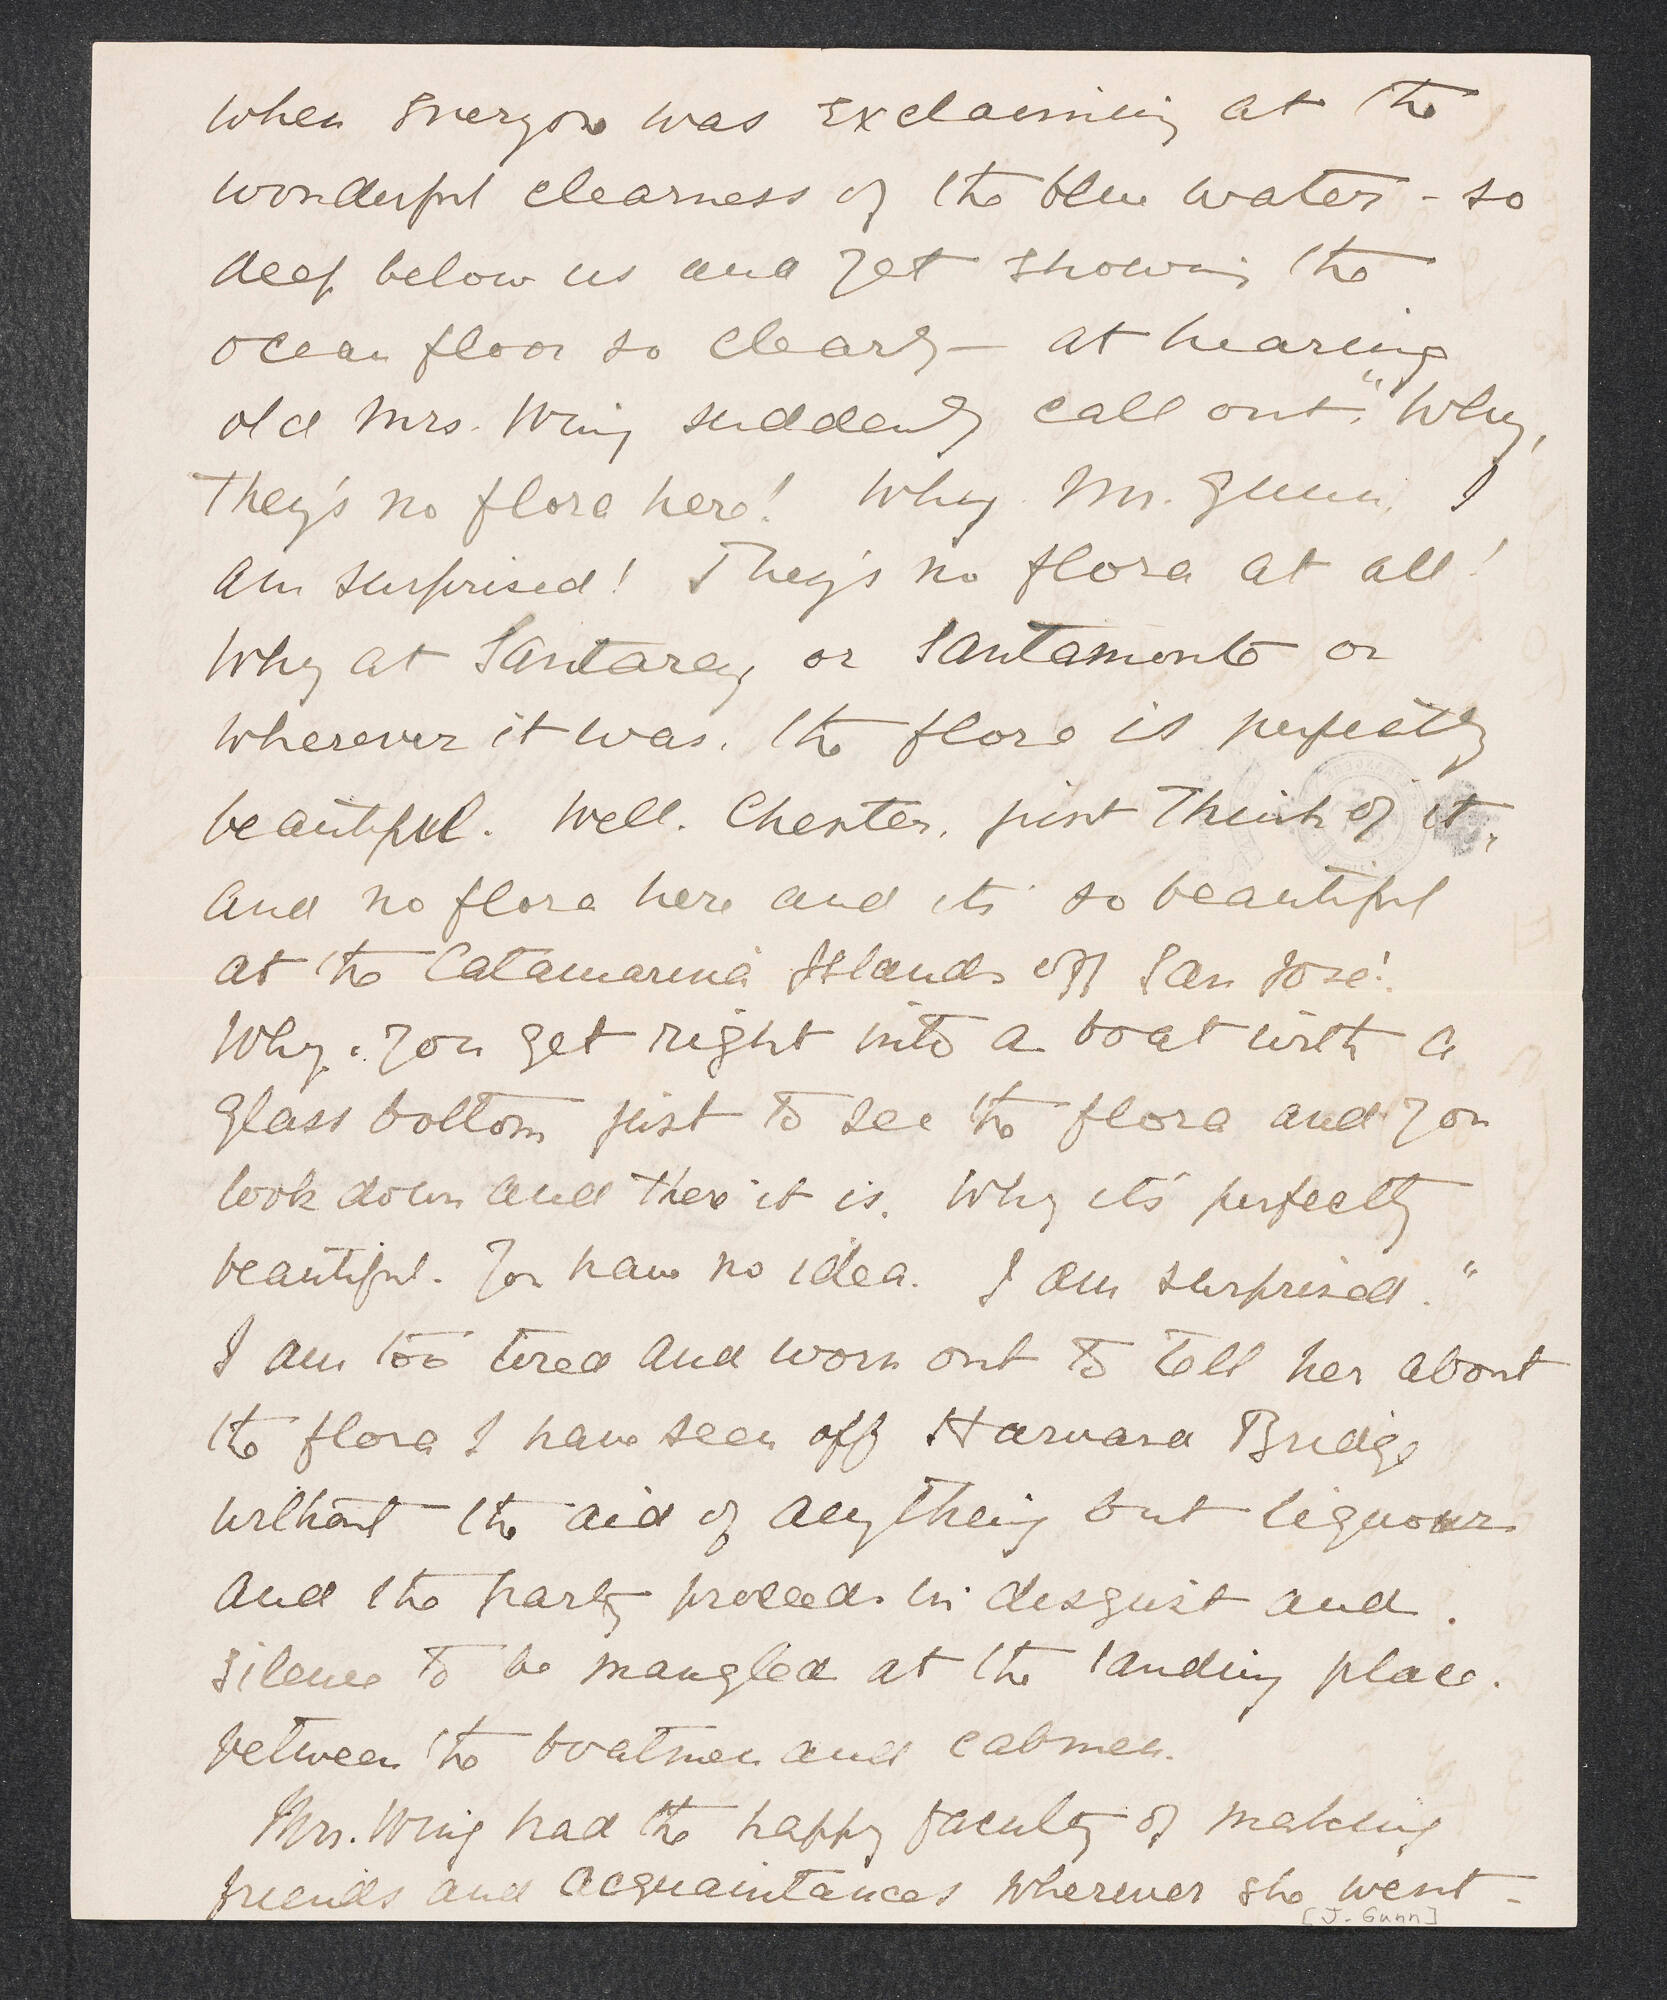 When everyone was exclaiming at the
wonderful clearness of the blue water - so
deep below us and yet showing the
ocean floor so clearly - at hearing
old Mrs. Wing suddenly call out. "Why,
They's no flora here! Why Mr. Gunn, I
am surprised! They's no flora at all!
Why at Santarey or Santamonto or
wherever it was. the flora is perfectly
beautiful. Well. Chester. just think of it.
And no flora here and it's so beautiful
at the Catamarina Islands off San José!
Why. you get right into a boat with a
glass bottom just to see the flora and you
look down and there it is. Why it's perfectly
beautiful. You have no idea. I am surprised."
I am too tired and worn out to tell her about
the flora I have seen off Harvard Bridge
without the aid of anything but liquour
and the party proceeds in disgust and
silence to be mangled at the landing place.
between the boatmen and cabmen.
Mrs. Wing had the happy faculty of making
friends and acquaintances wherever she went -
[J. Gunn]